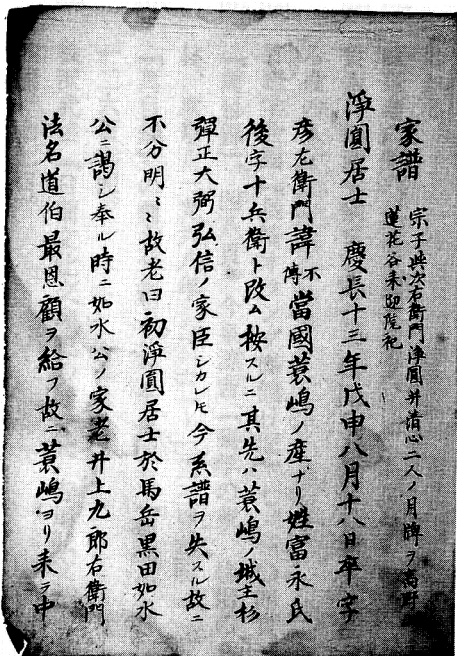 家譜
宗子與次右衛門淨圓并清心二人ノ月牌ヲ高野
蓮花谷来迎院祀
淨圓居士 慶長十三年戊申八月十八日卒字
彦左衛門諱不傳當國蓑嶋ノ産ナリ姓富永氏
後字十兵衛ト改ム按スルニ其先ハ蓑嶋ノ城主杉
彈正大弼弘信ノ家臣シカレトモ今系譜ヲ失スル故ニ
不分明〻〻故老曰初淨圓居士於馬岳黒田如水
公ニ謁シ奉ル時ニ如水公ノ家老井上九郎右衛門
法名道伯最恩顧ヲ給フ故ニ蓑嶋ヨリ来ラ中